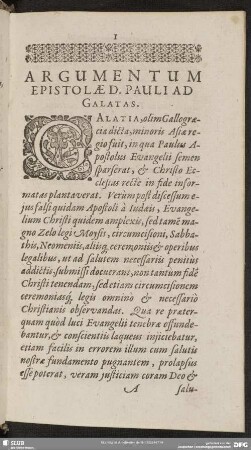 1
ARGUMENTUM
EPISTOLÆ D. PAULI AD
GALATAS.
GALATIA, olim Gallogræ-
cia dicta, minoris Asiæ re-
gio fuit, in qua Paulus A-
postolus Evangelii semen
sparserat, & Christo Ec-
clesias recte in fide infor-
matas plantaverat. Verùm post discessum e-
jus falsi quidam Apostoli à Iudæis, Evange-
lium Christi quidem amplexis, sed tamē ma-
gno Zelo legi Moysis, circumcisioni, Sabba-
this, Neomeniis, aliisq́; ceremoniis & operibus
legalibus, ut ad salutem necessariis penitus
addictis, submissi docuerant, non tantum fidē
Christi tenendam, sed etiam circumcisionem
ceremoniasq́; legis omnino & necessariò
Christianis observandas. Qua re præter-
quam quòd luci Evangelii tenebræ offunde-
bantur, & conscientiis laqueus injiciebatur,
etiam facilis in errorem illum cum salutis
nostræ fundamento pugnantem, prolapsus
esse poterat, veram justiciam coram Deo &
A salu-
SLUB
DFG